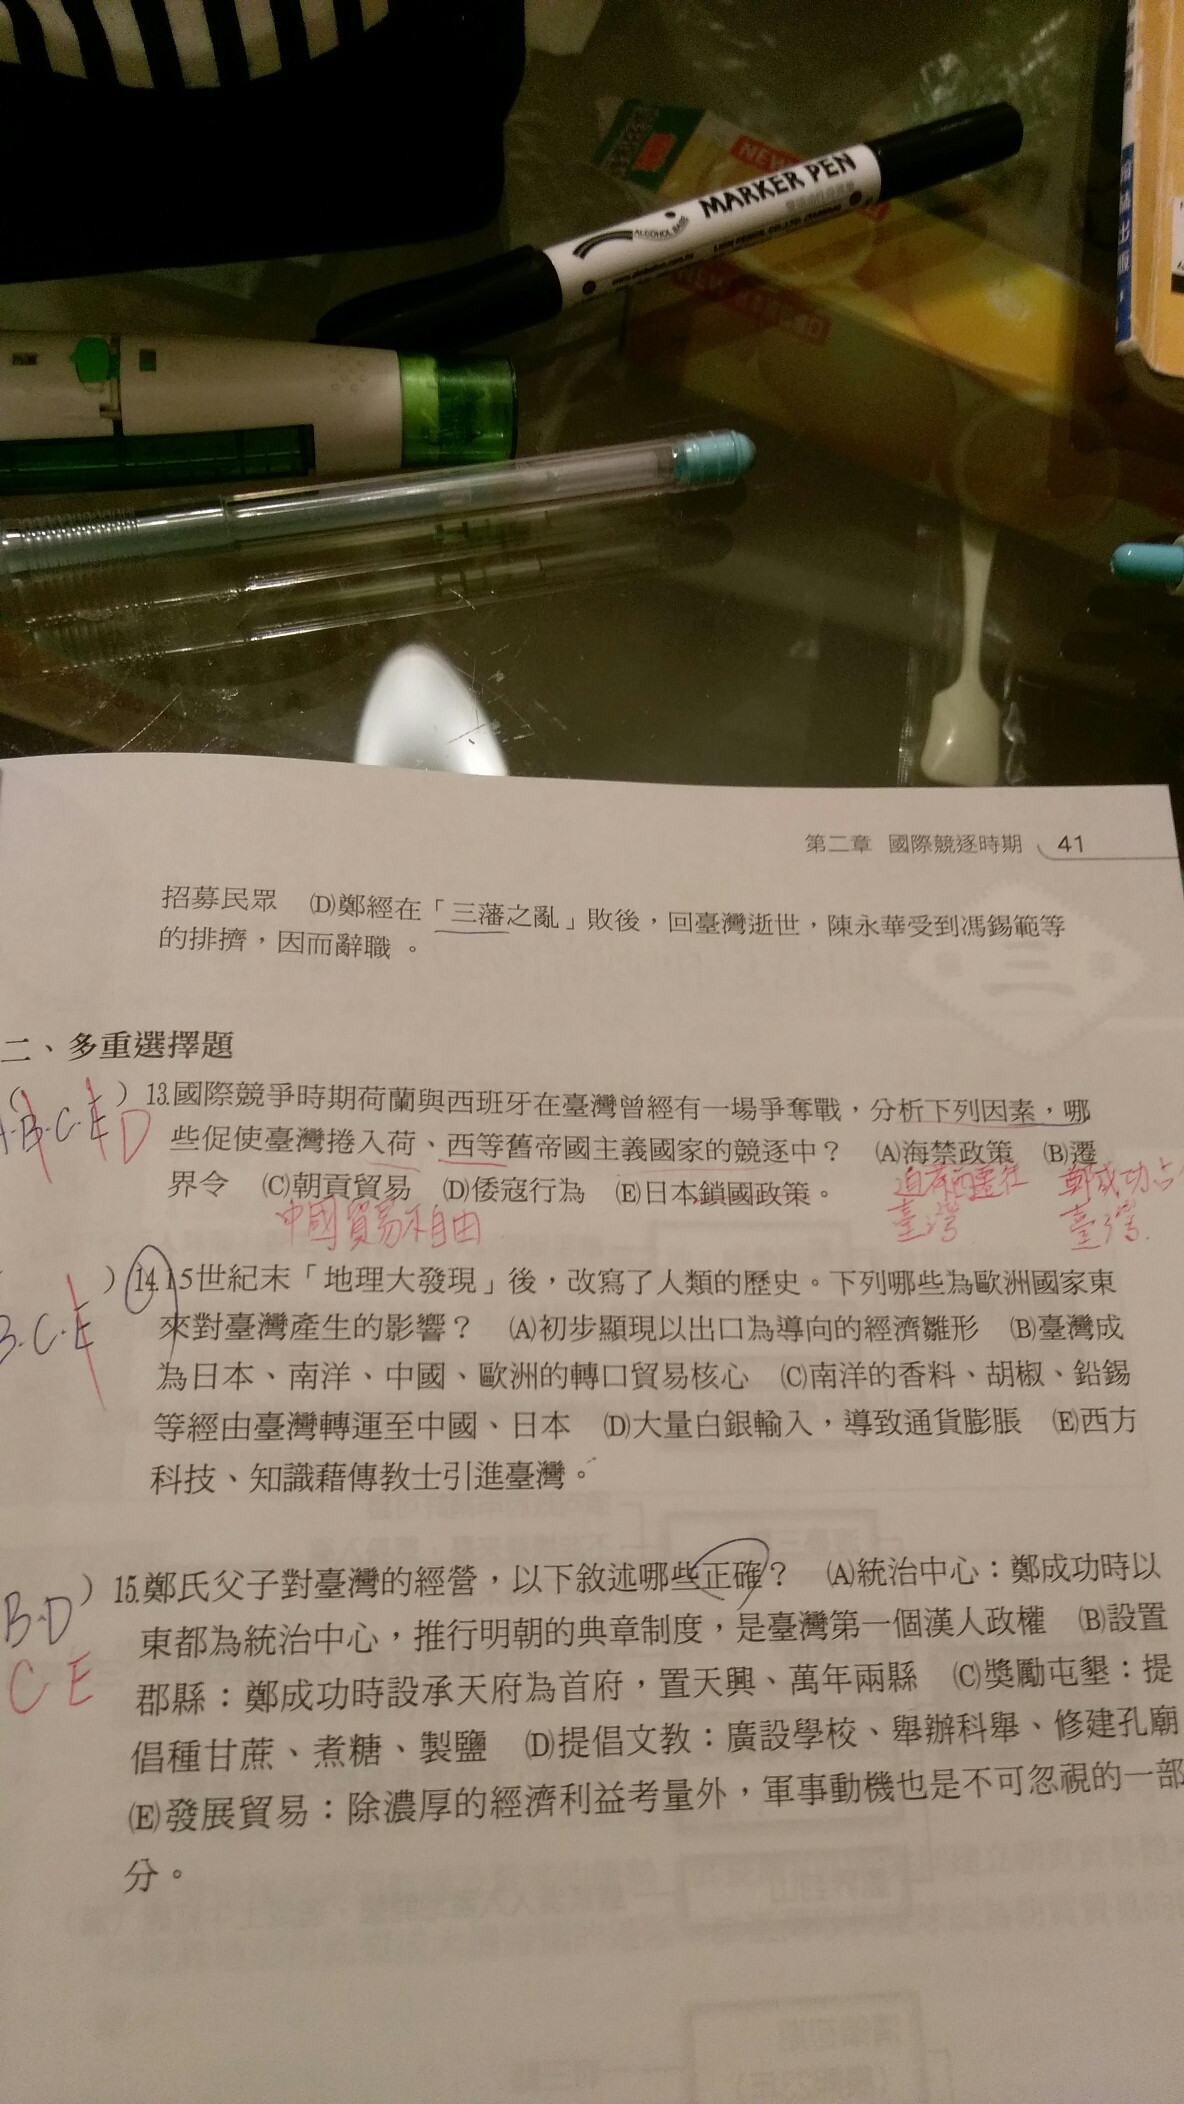 NEW
MARKER PEN
ALCOHOL BASE
第二章 國際競逐時期 41
招募民眾 (D)鄭經在「三藩之亂」敗後，回臺灣逝世，陳永華受到馮錫範等
的排擠，因而辭職。
二、多重選擇題
B.C.E D
)13.國際競爭時期荷蘭與西班牙在臺灣曾經有一場爭奪戰，分析下列因素，哪
些促使臺灣捲入荷、西等舊帝國主義國家的競逐中？ (A)海禁政策 (B)遷
界令 (C)朝貢貿易 (D)倭寇行為 (E)日本鎖國政策。
迫荷西
臺灣
鄭成功占
臺灣
中國貿易不自由
)14.15世紀末「地理大發現」後，改寫了人類的歷史。下列哪些為歐洲國家東
B.C.E
來對臺灣產生的影響？ (A)初步顯現以出口為導向的經濟雛形 (B)臺灣成
為日本、南洋、中國、歐洲的轉口貿易核心 (C)南洋的香料、胡椒、鉛錫
等經由臺灣轉運至中國、日本 (D)大量白銀輸入，導致通貨膨脹 (E)西方
科技、知識藉傳教士引進臺灣。
B.D
C E
)15.鄭氏父子對臺灣的經營，以下敘述哪些正確？ (A)統治中心：鄭成功時以
東都為統治中心，推行明朝的典章制度，是臺灣第一個漢人政權 (B)設置
郡縣：鄭成功時設承天府為首府，置天興、萬年兩縣 (C)獎勵屯墾：提
倡種甘蔗、煮糖、製鹽 (D)提倡文教：廣設學校、舉辦科舉、修建孔廟
(E)發展貿易：除濃厚的經濟利益考量外，軍事動機也是不可忽視的一部
分。